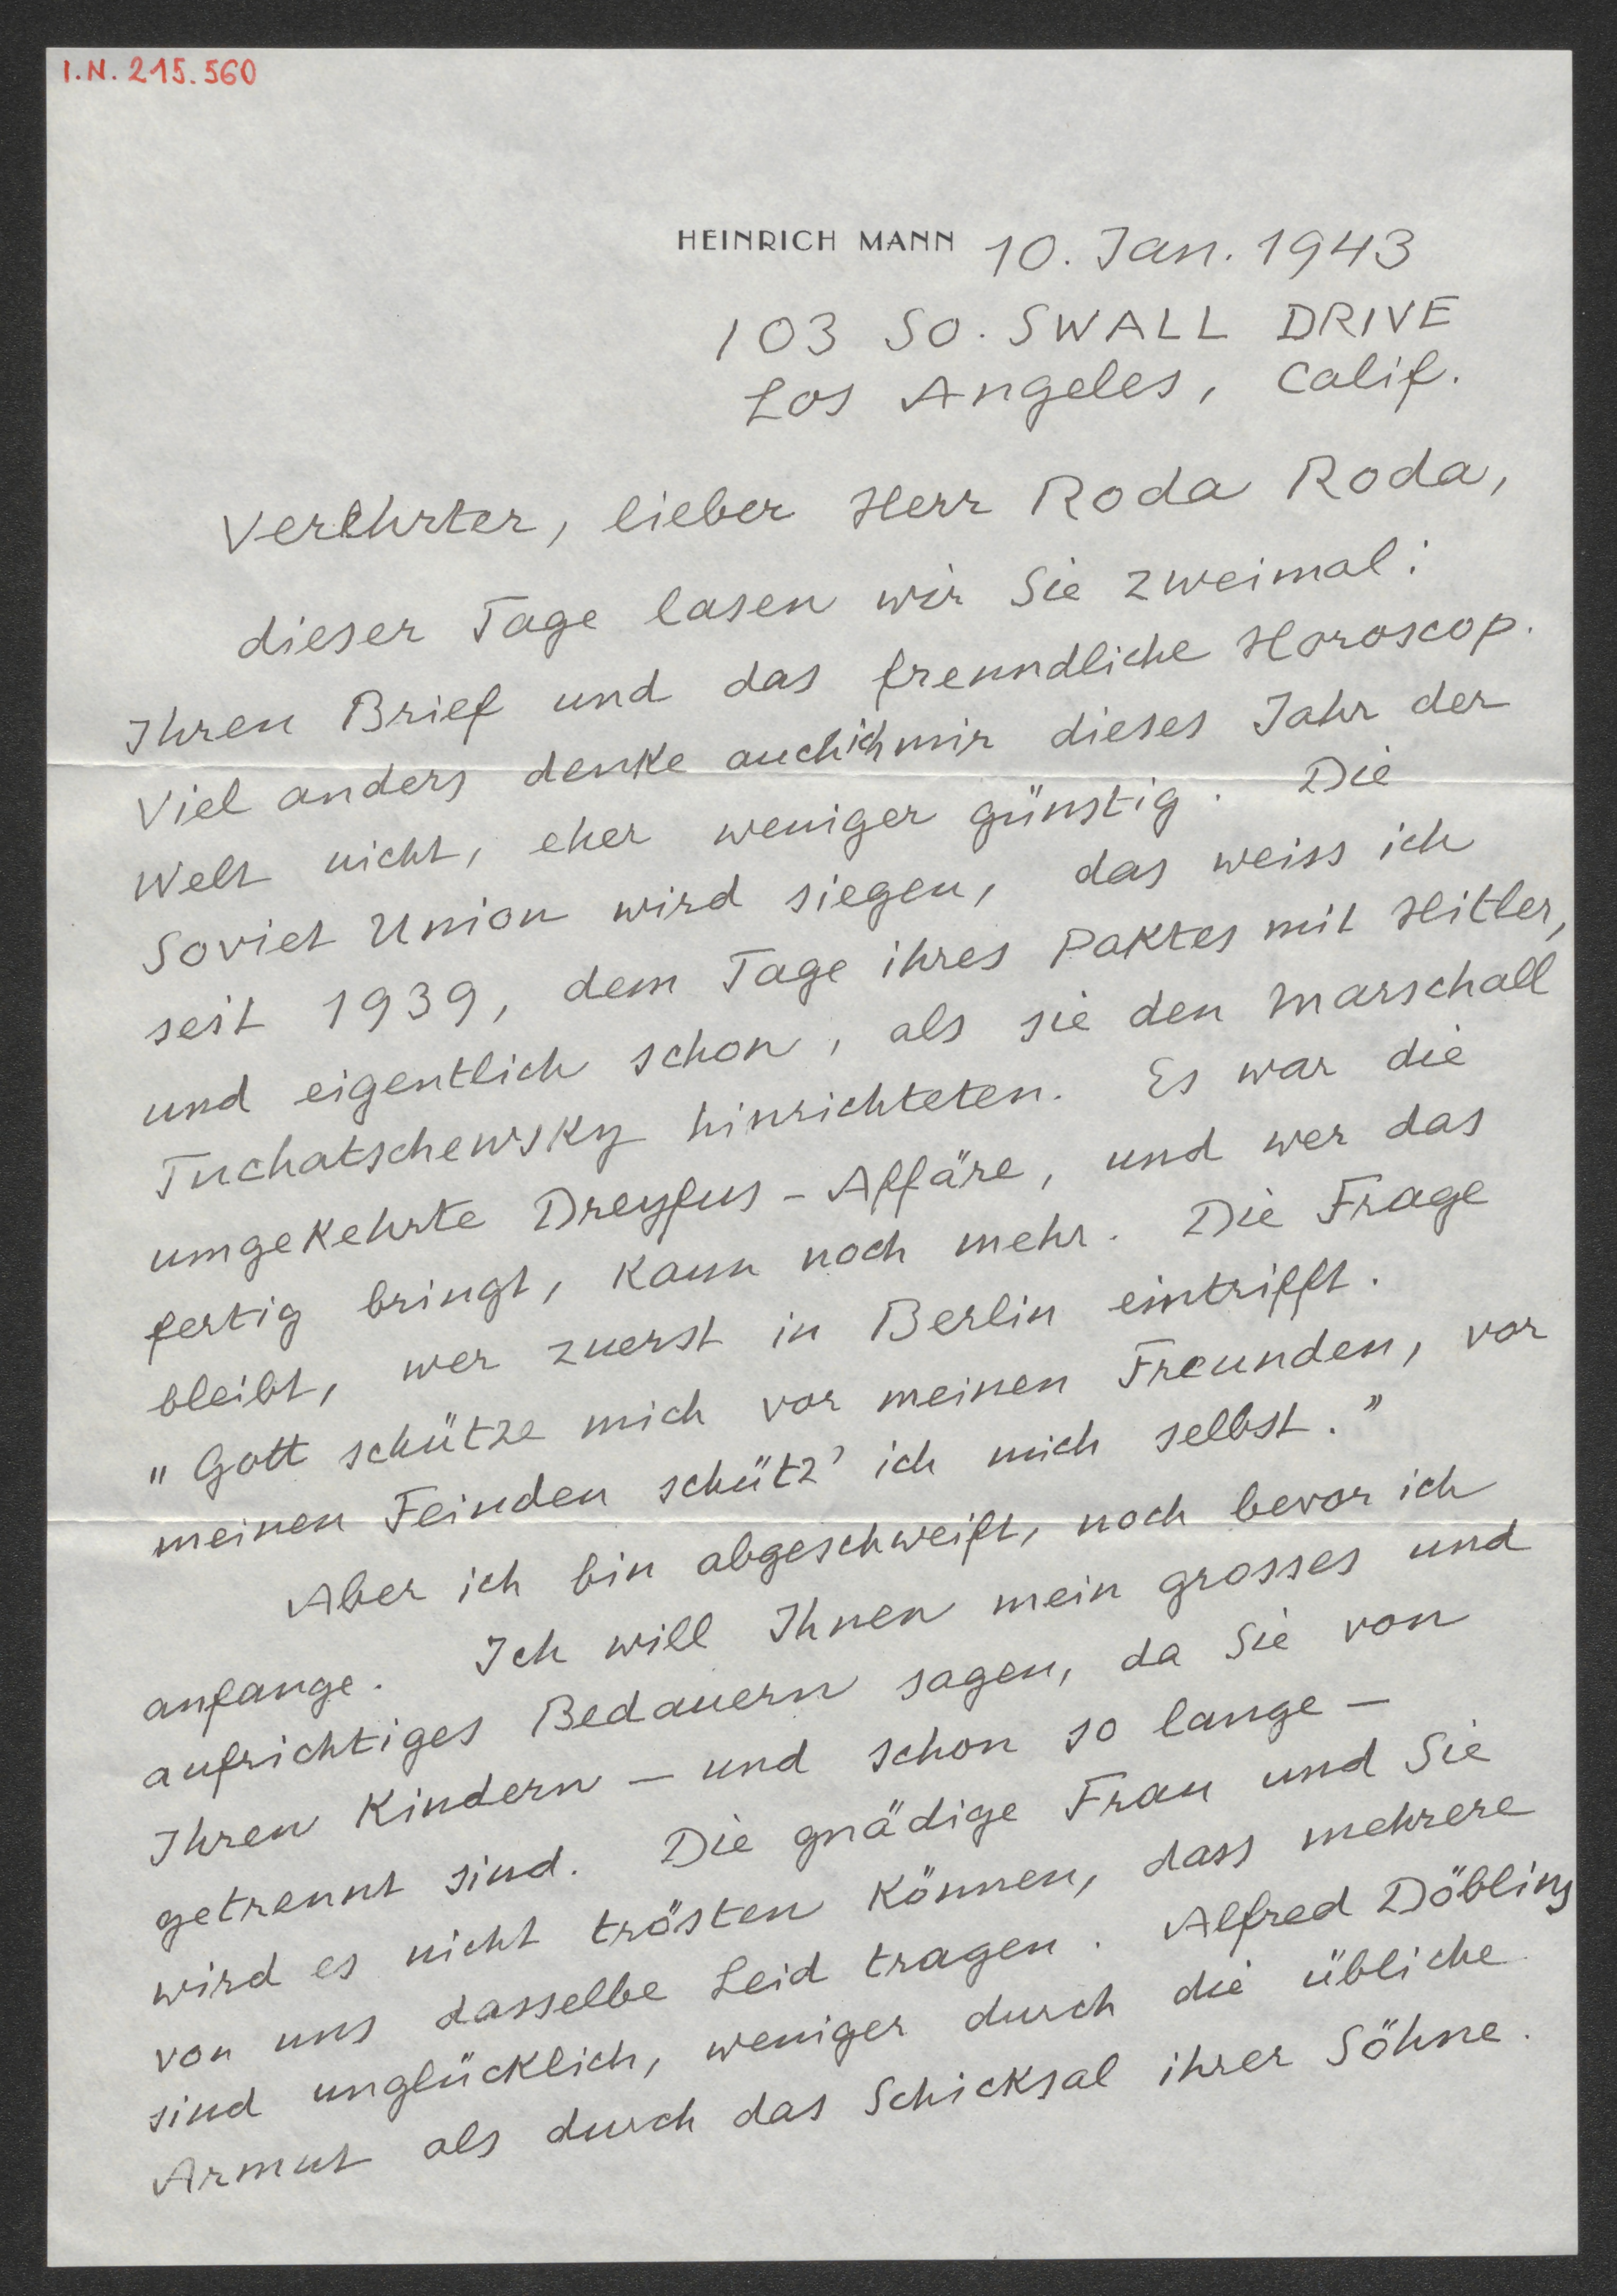 I.N. 215.560
HEINRICH MANN 10. Jan. 1943
103 SO. SWALL DRIVE
Los Angeles, Calif.
Verehrter, lieber Herr Roda Roda,
dieser Tage lasen wir Sie zweimal:
Ihren Brief und das freundliche Horoscop.
Viel anders denke auch ich mir dieses Jahr der
Welt nicht, eher weniger günstig. Die
Soviet Union wird siegen, das weiss ich
seit 1939, dem Tage ihres Paktes mit Hitler,
und eigentlich schon, als sie den Marschall
Tuchatschewsky hinrichteten. Es war die
umgekehrte Dreyfus-Affäre, und wer das
fertig bringt, kann noch mehr. Die Frage
bleibt, wer zuerst in Berlin eintrifft.
„Gott schütze mich vor meinen Freunden, vor
meinen Feinden schütz' ich mich selbst."
Aber ich bin abgeschweift, noch bevor ich
anfange. Ich will Ihnen mein grosses und
aufrichtiges Bedauern sagen, da Sie von
Ihren Kindern – und schon so lange –
getrennt sind. Die gnädige Frau und Sie
wird es nicht trösten können, dass mehrere
von uns dasselbe Leid tragen. Alfred Döblins
sind unglücklich, weniger durch die übliche
Armut als durch das Schicksal ihrer Söhne.